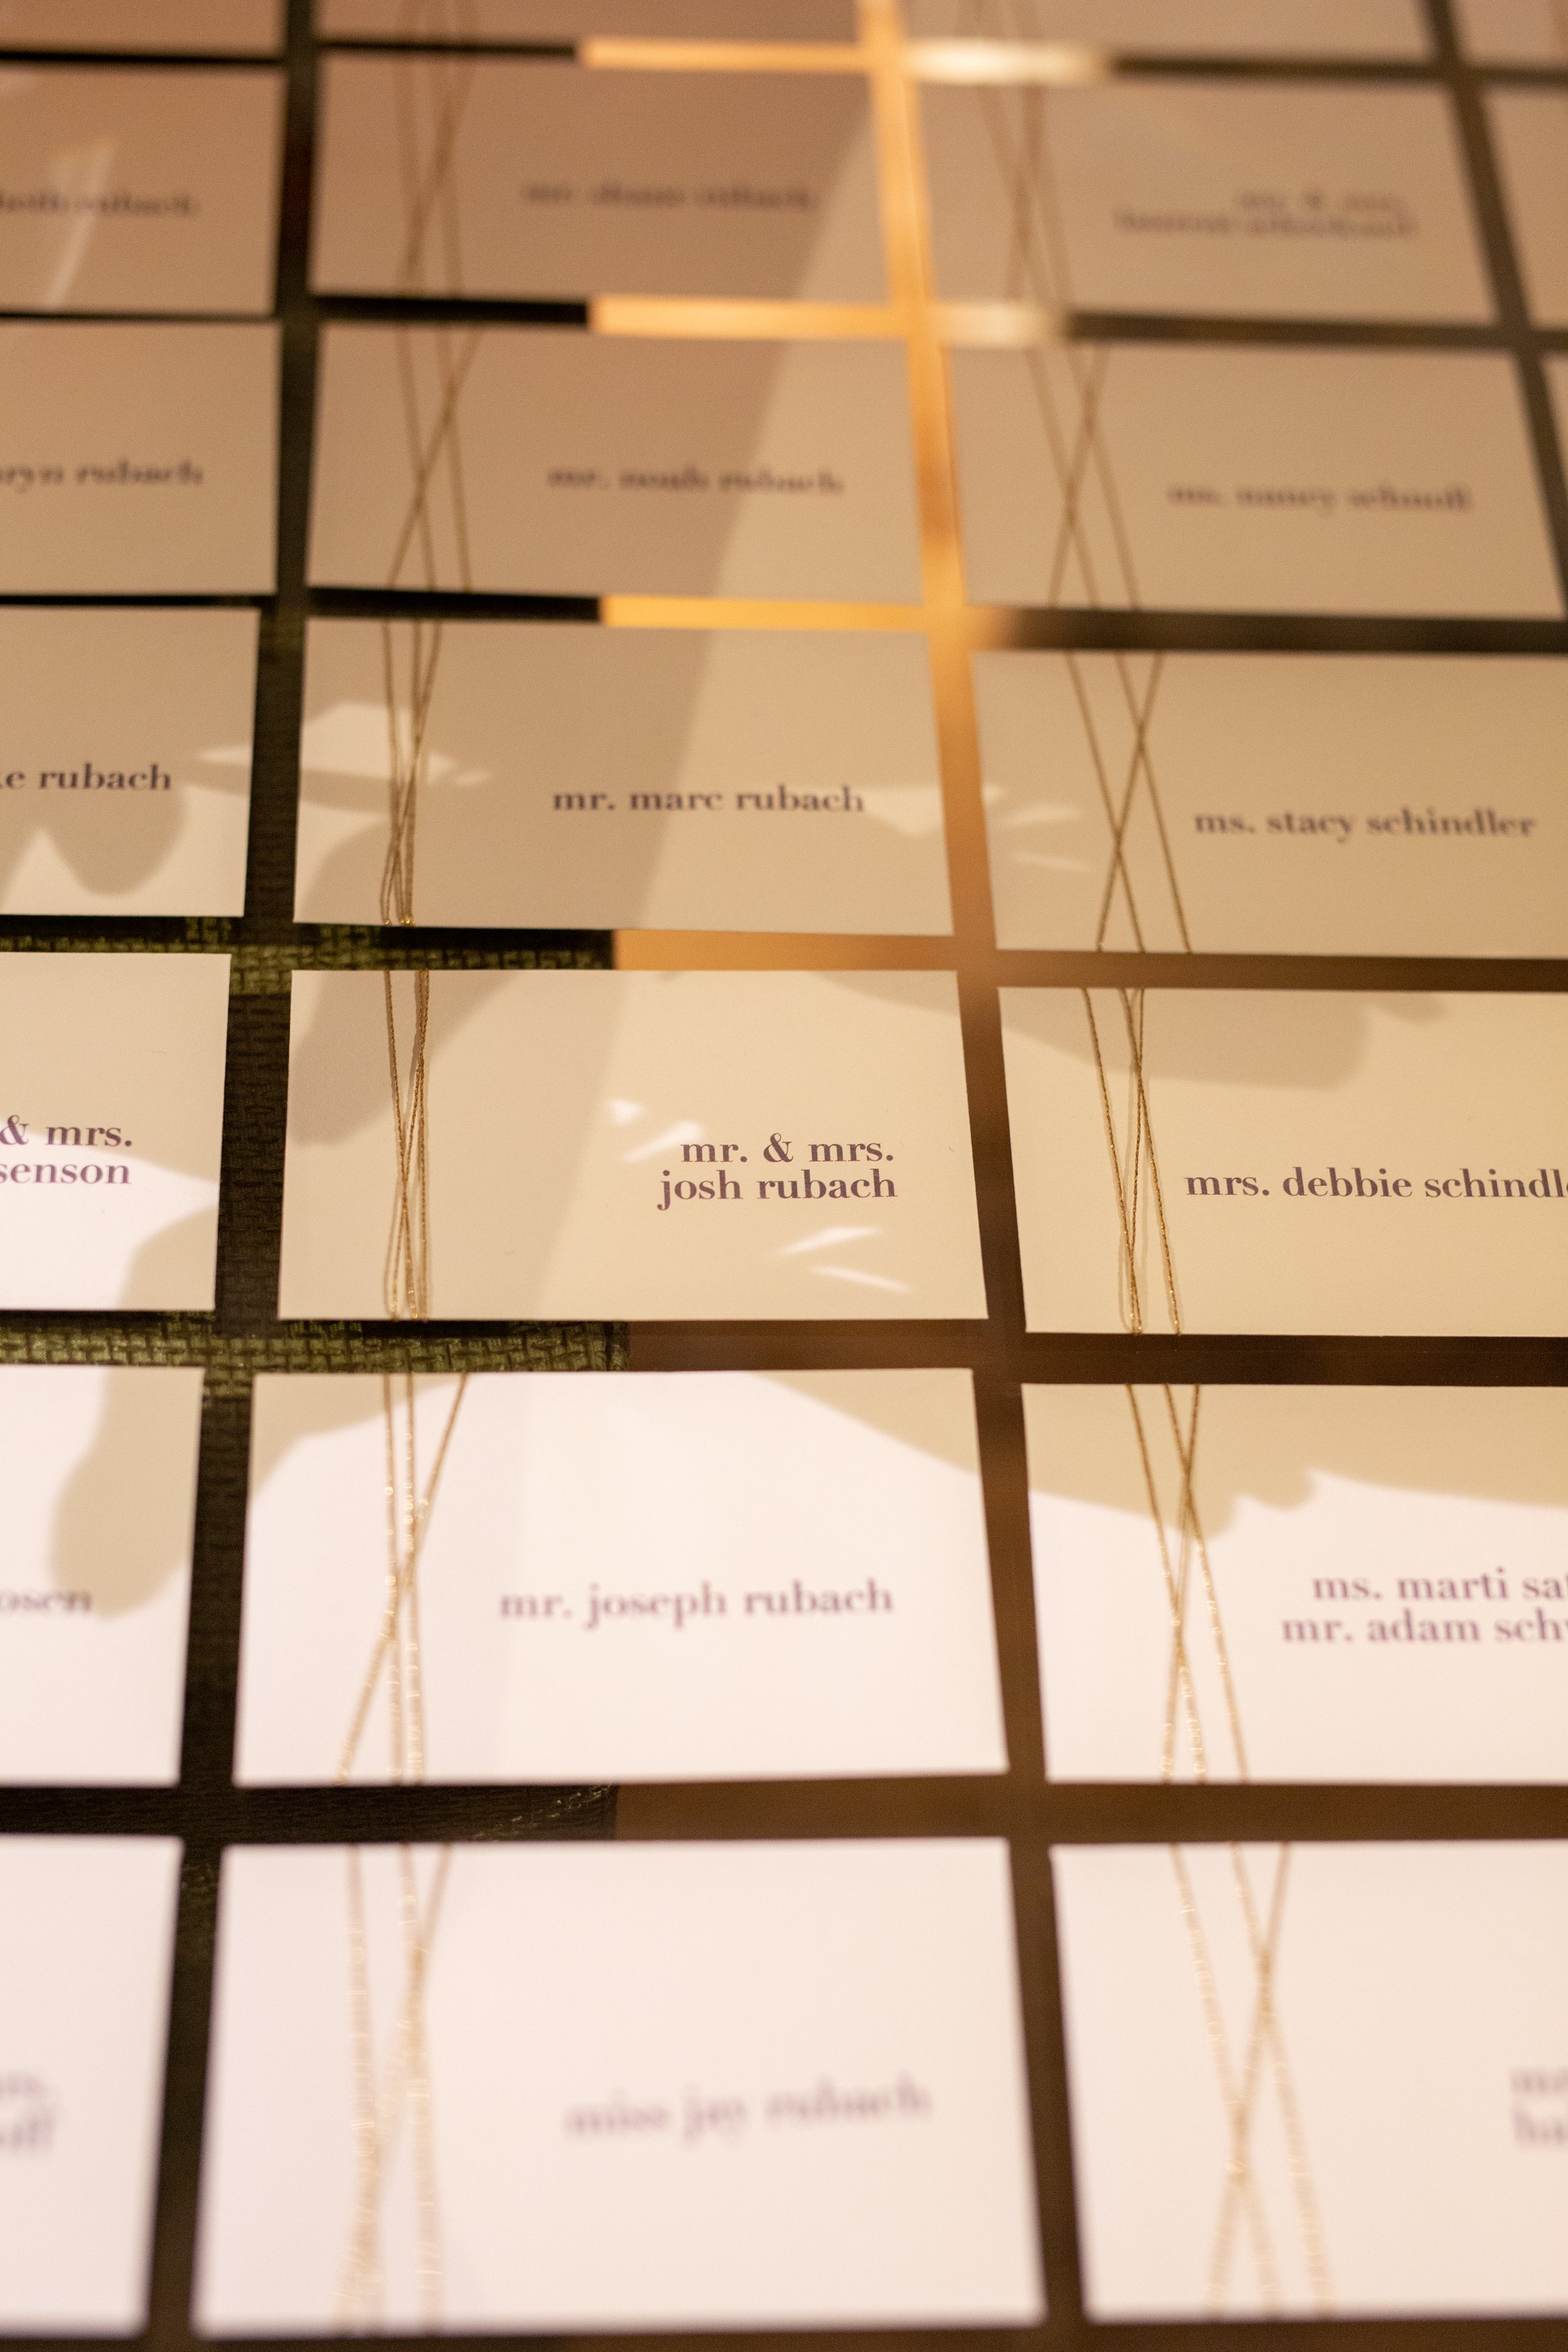 rubach
mr. shane rubach
mr. & mrs.
ryn rubach
mr. noah rubach
ms. nancy schmoll
ke rubach
mr. marc rubach
ms. stacy schindler
& mrs.
senson
mr. & mrs.
josh rubach
mrs. debbie schindle
osen
mr. joseph rubach
ms. marti sat
mr. adam schw
miss jay rubach